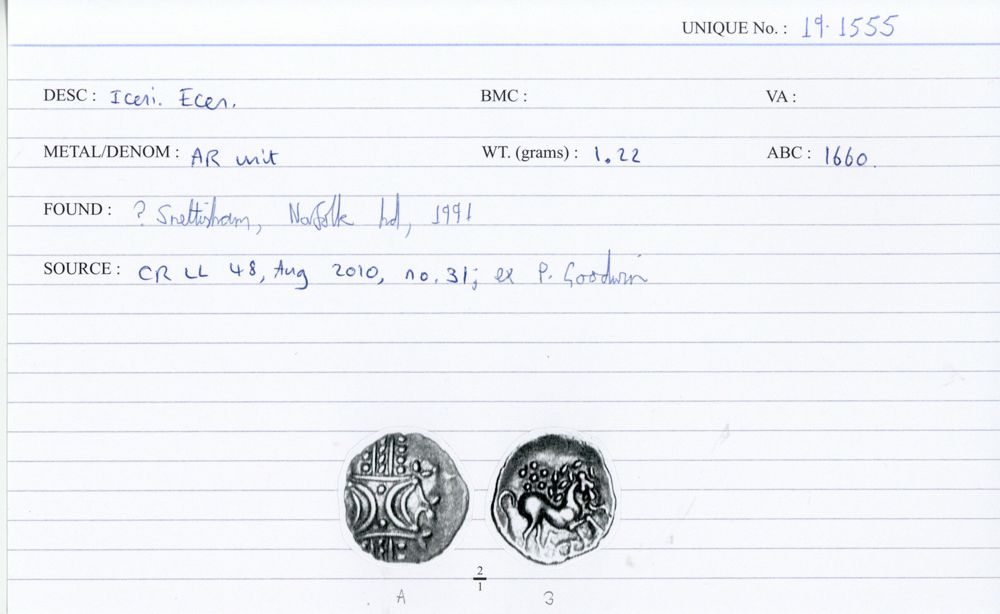 UNIQUE No. : 19.1555
DESC : Iceni. Ecen. BMC : VA :
METAL/DENOM : AR unit WT. (grams) : 1.22 ABC : 1660.
FOUND : ? Snettisham, Norfolk hd, 1991
SOURCE : CR LL 48, Aug 2010, no. 31; ex P. Goodwin
2
1
A 3